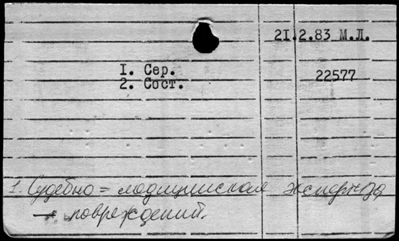 21.2.83 М.Л.
1. Сер.
22577
2. Сост.
1. Судебно = медицинская экспертиза
повреждений.